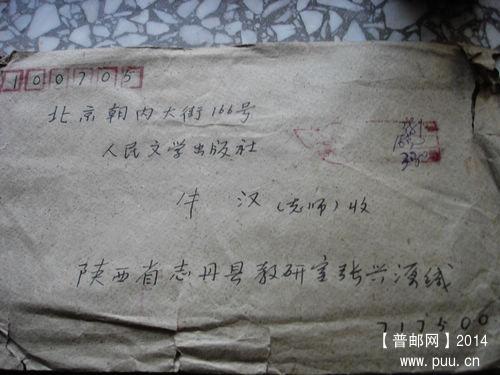 100705
北京朝内大街166号
人民文学出版社
牛汉(老师)收
陕西省志丹县教研室张兴源缄
717500
【普邮网】2014
www.puu.cn